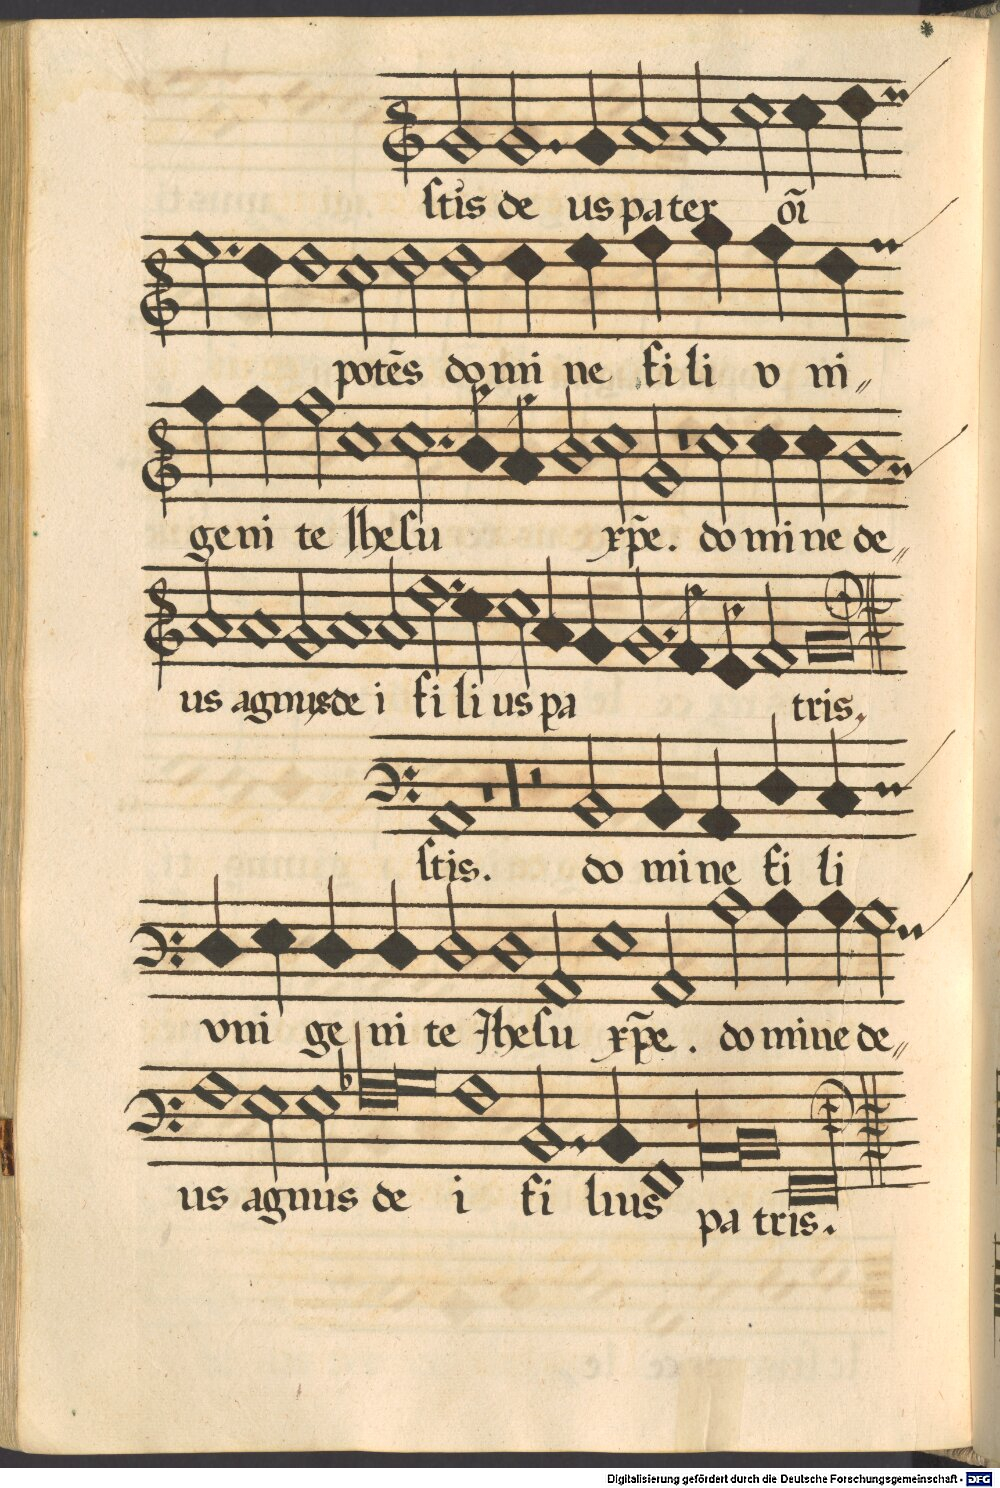 stis de us pater oı̄
potēs domi ne fili v ni„
geni te Ihesu xp̄e. domine de„
us agnus de i filius pa tris.
stis. do mine fi li
vni ge ni te Jhesu xp̄e. domine de„
us agnus de i fi lius pa tris.
Digitalisierung gefördert durch die Deutsche Forschungsgemeinschaft - DFG